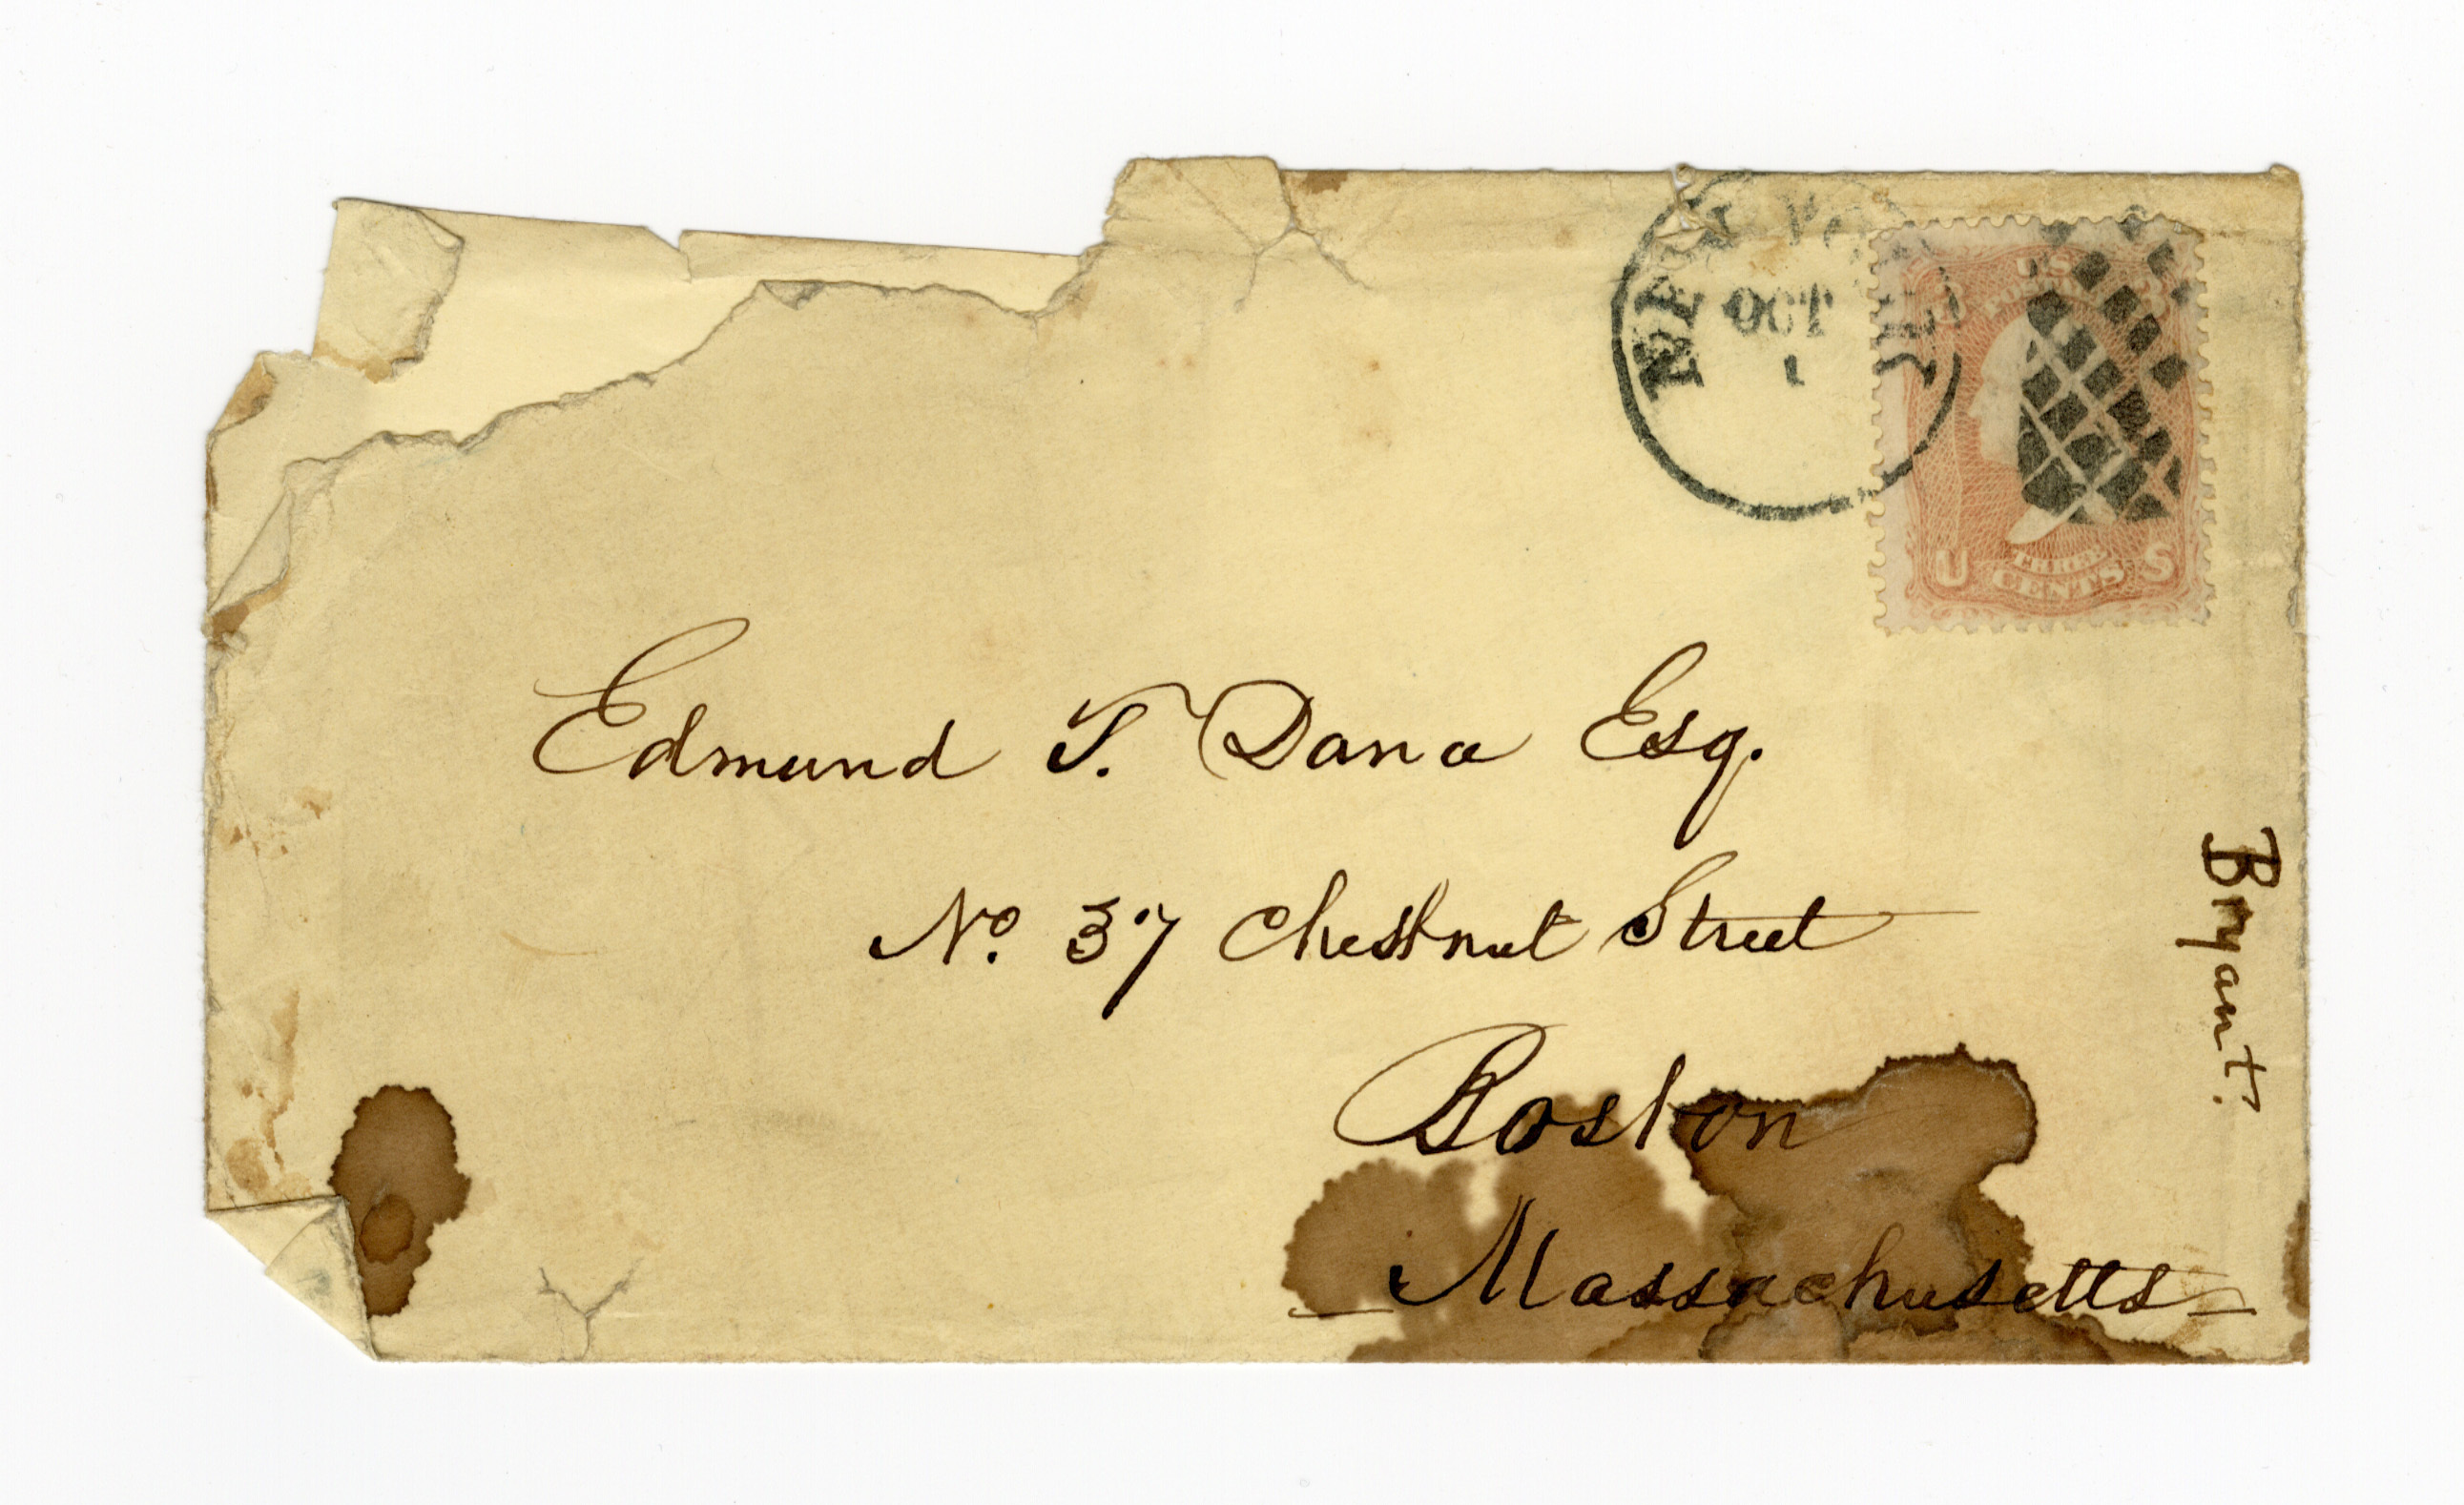 NEW YORK
OCT
1
U.S.
3 3
U THREE S
CENTS
Edmund T. Dana Esq.
No. 37 Chestnut Street
Boston
Massachusetts
Bryant.